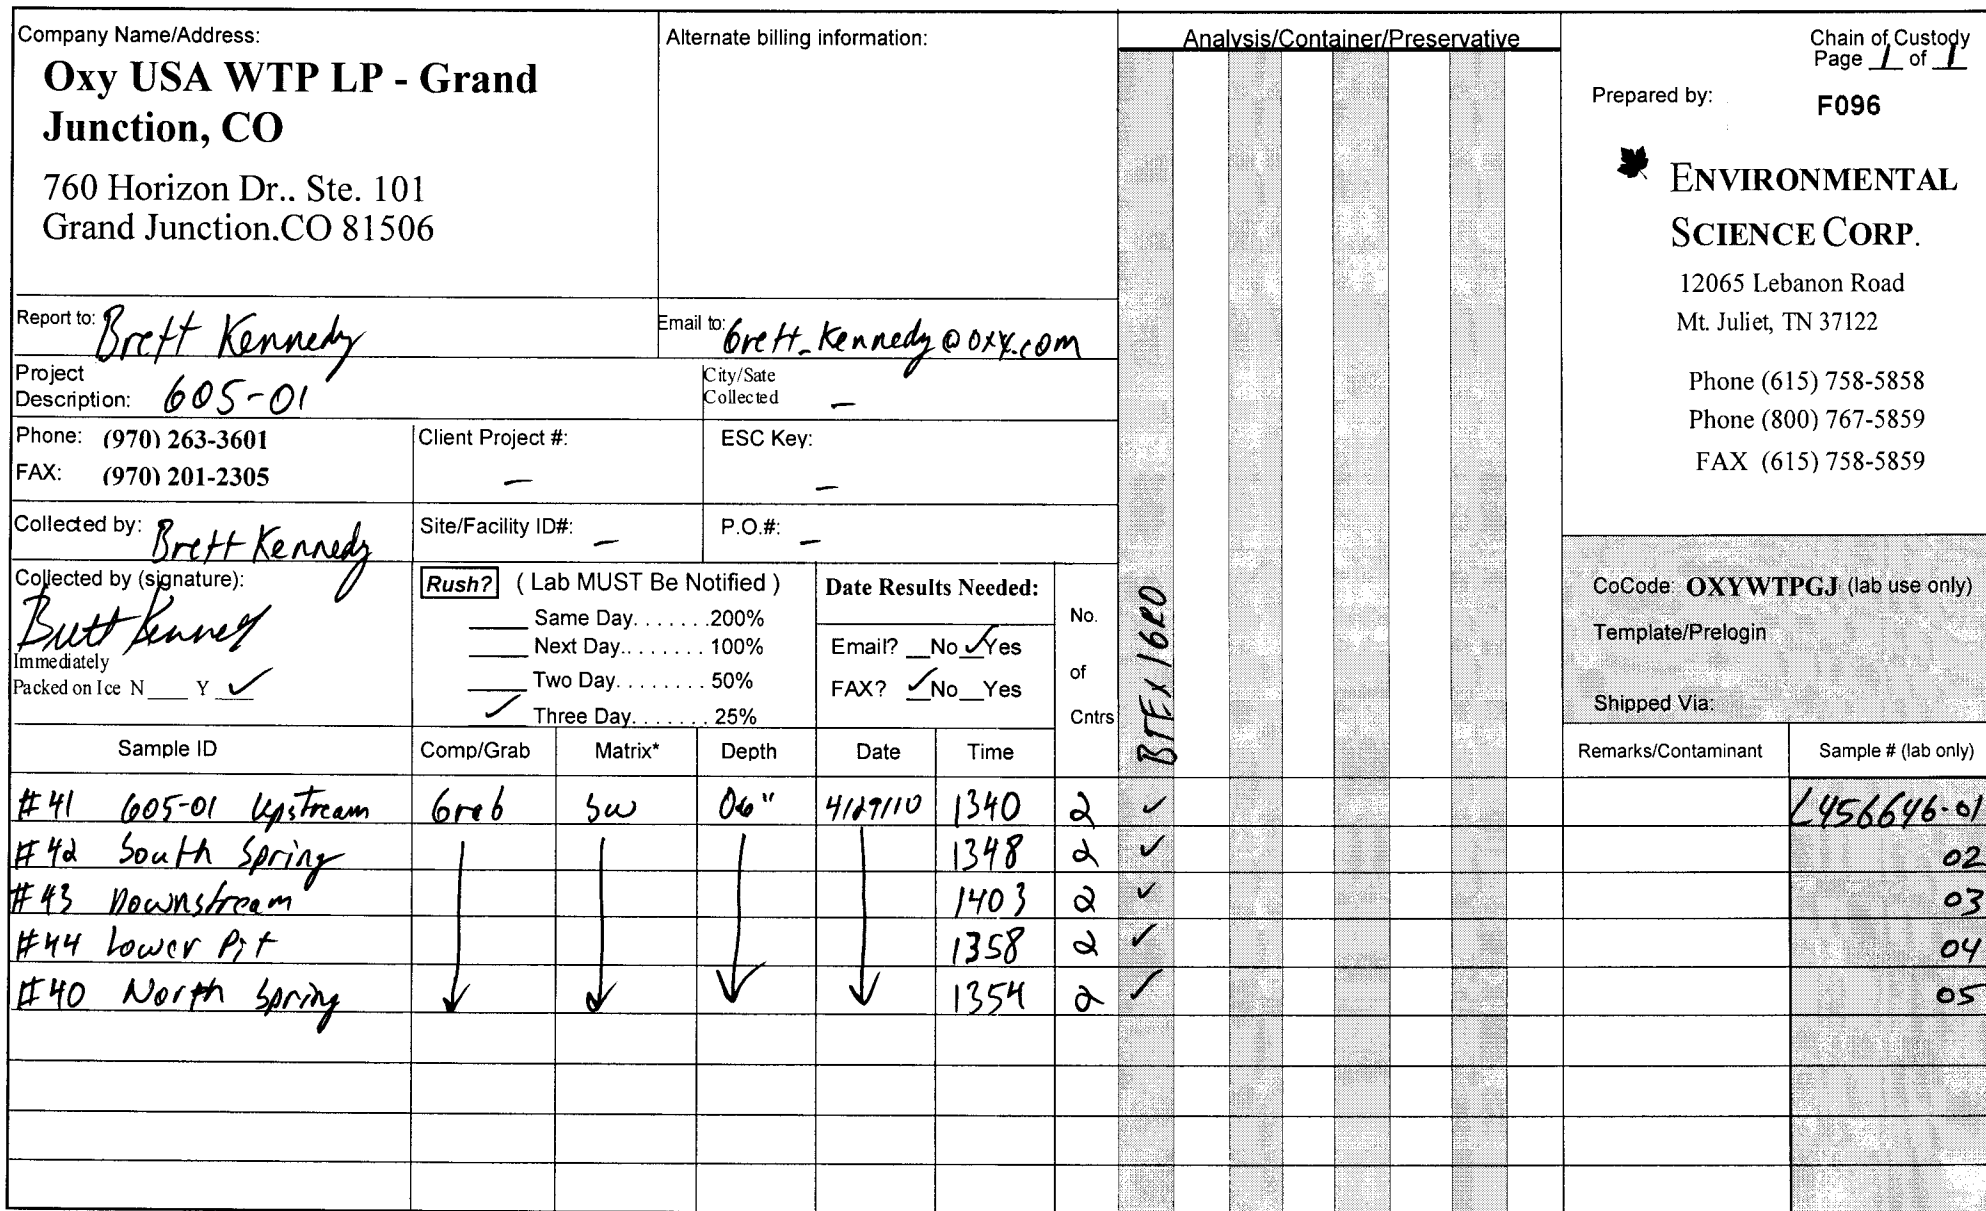 Company Name/Address:
Oxy USA WTP LP - Grand
Junction, CO
760 Horizon Dr.. Ste. 101
Grand Junction.CO 81506
Alternate billing information:
Analysis/Container/Preservative
Chain of Custody
Page 1 of 1
Prepared by:
F096
ENVIRONMENTAL
SCIENCE CORP.
12065 Lebanon Road
Mt. Juliet, TN 37122
Phone (615) 758-5858
Phone (800) 767-5859
FAX (615) 758-5859
Report to: Brett Kennedy
Email to: brett_kennedy@oxy.com
Project
Description: 605-01
City/Sate
Collected –
Phone: (970) 263-3601
FAX: (970) 201-2305
Client Project #:
–
ESC Key:
–
Collected by: Brett Kennedy
Site/Facility ID#: –
P.O.#: –
Collected by (signature):
Brett Kennedy
Immediately
Packed on Ice N ___ Y ✓
Rush? ( Lab MUST Be Notified )
___ Same Day. . . . . . .200%
___ Next Day.. . . . . . . 100%
___ Two Day. . . . . . . . 50%
✓ Three Day. . . . . . . 25%
Date Results Needed:
Email? __No ✓Yes
FAX? ✓No__Yes
No.
of
Cntrs
BTEX/GRO
CoCode: OXYWTPGJ (lab use only)
Template/Prelogin
Shipped Via:
Sample ID Comp/Grab Matrix* Depth Date Time Remarks/Contaminant Sample # (lab only)
#41 605-01 Upstream Grab SW 06" 4/29/10 1340 2 ✓ L456646-01
#42 South Spring 1348 2 ✓ 02
#43 Downstream 1403 2 ✓ 03
#44 Lower Pit 1358 2 ✓ 04
#40 North Spring 1354 2 ✓ 05